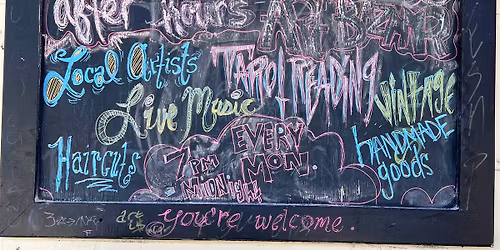 after hours ART BAZAAR
Local Artists
TAROT READING
VINTAGE
Live Music
HANDMADE
goods
Haircuts
EVERY
MON.
7PM
MIDNIGHT
you're welcome.